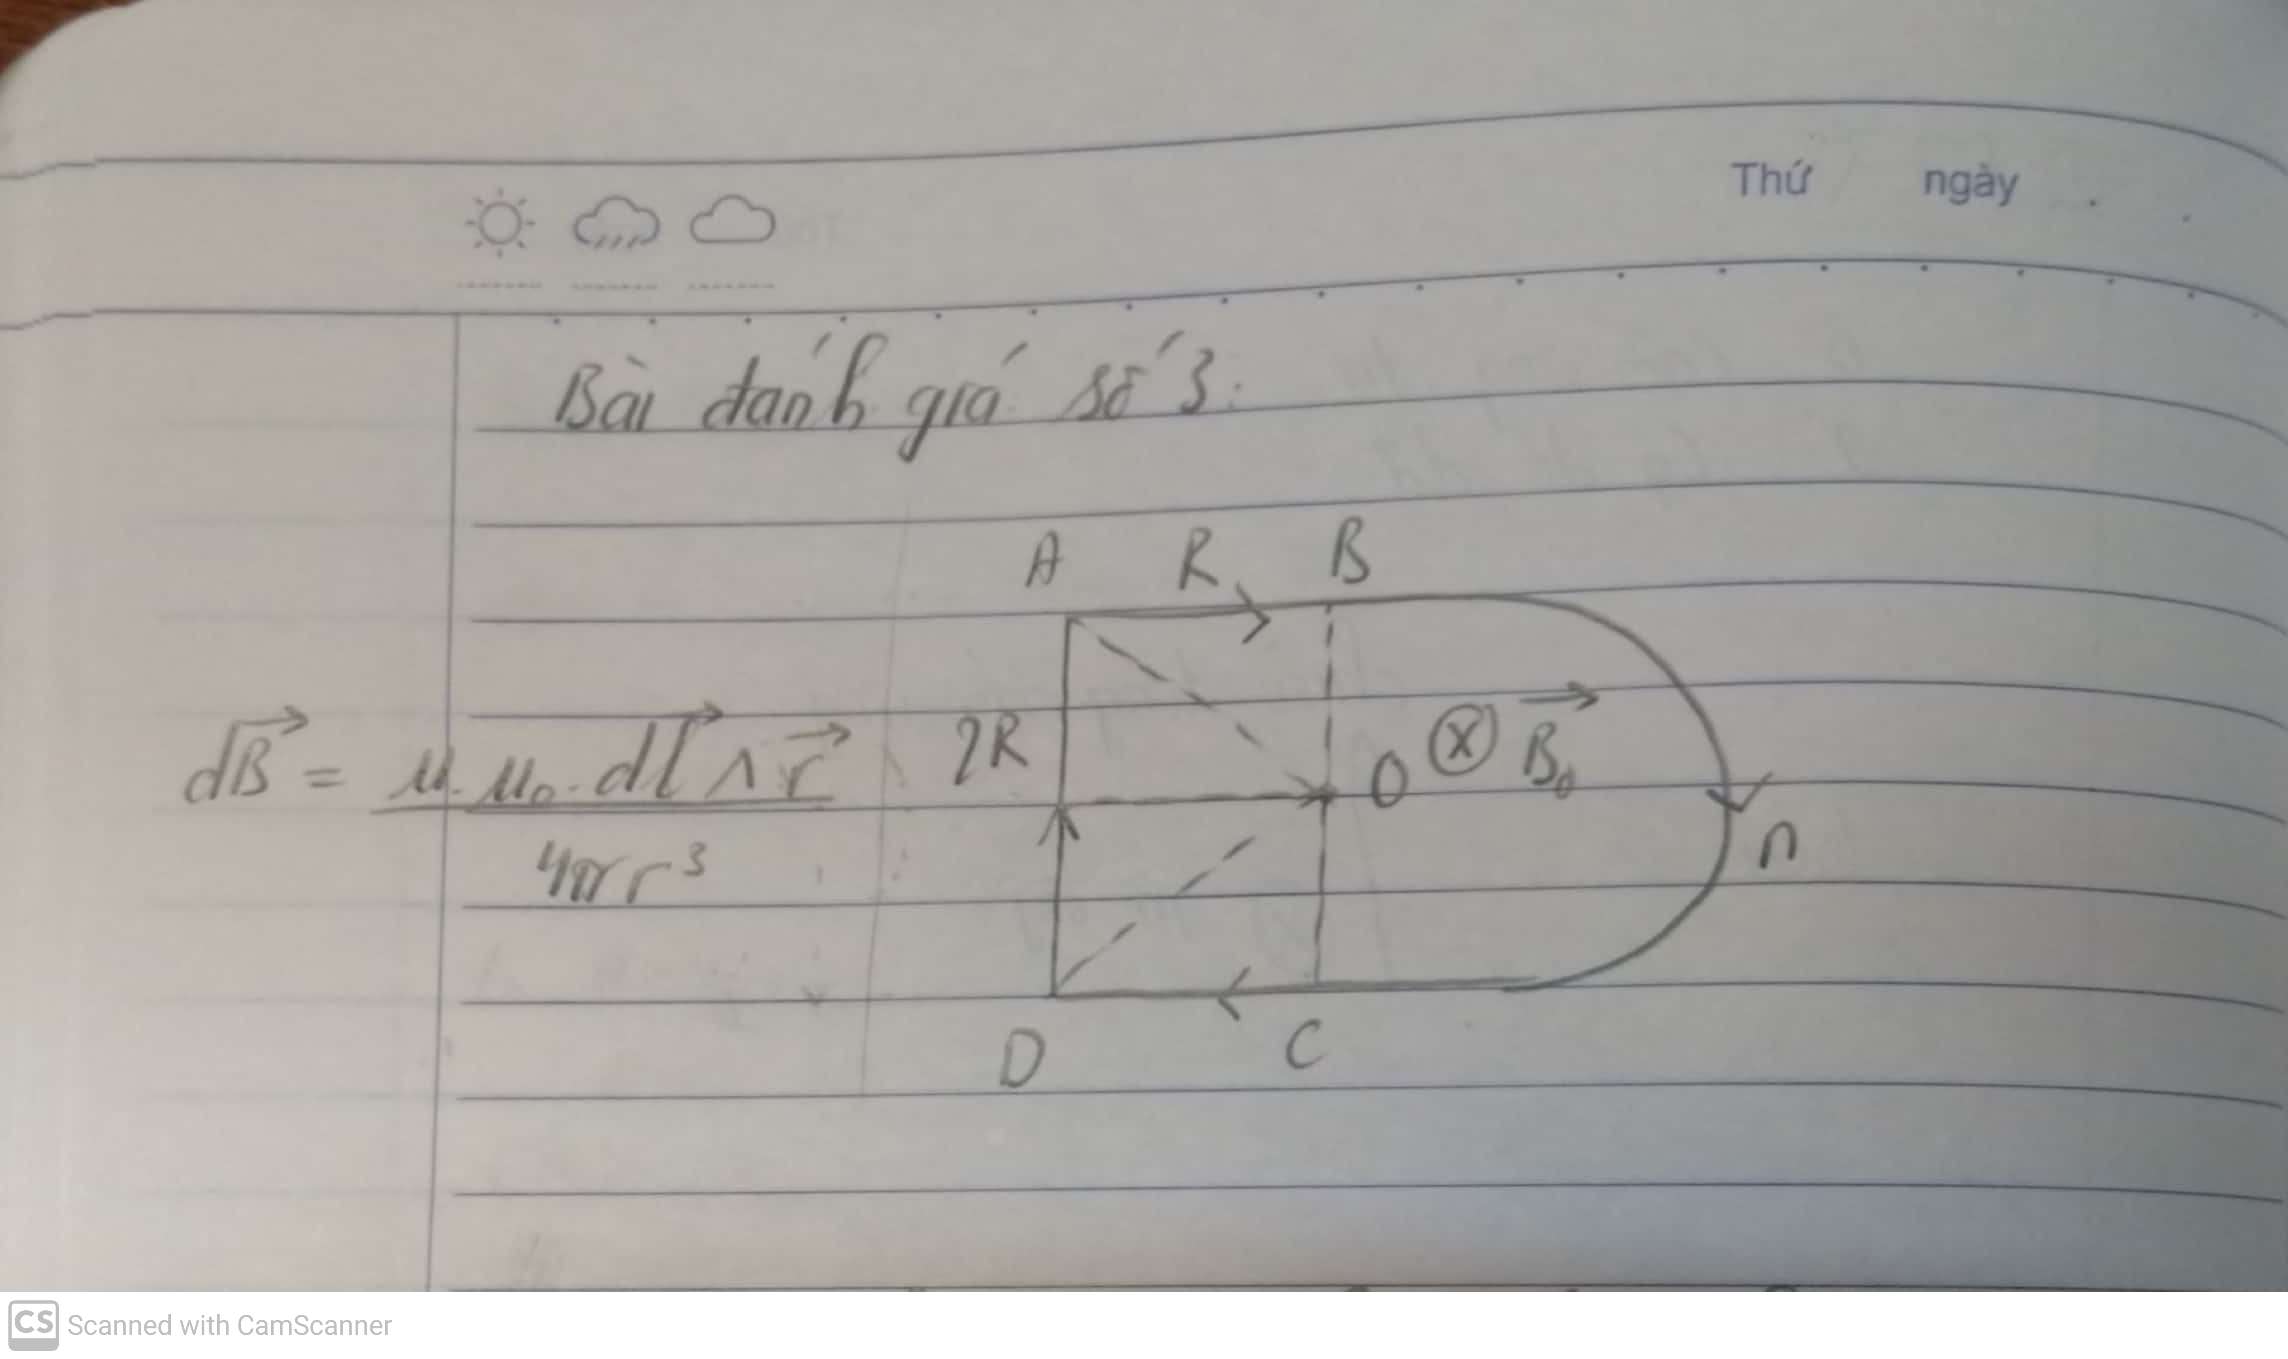 Thứ ngày
Bài đánh giá số 3:
A R B
dB = μ.μ₀.dl ∧ r
4πr³
2R
O ⊗ B₀
n
D C
CS Scanned with CamScanner